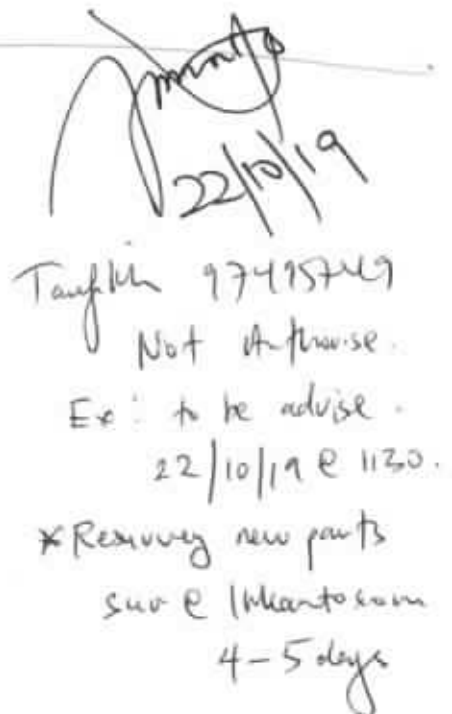 22/10/19
Taufikh 97495749
Not Authorise.
Ex: to be advise.
22/10/19 @ 1130.
*Resurvey new parts
@
4-5 days